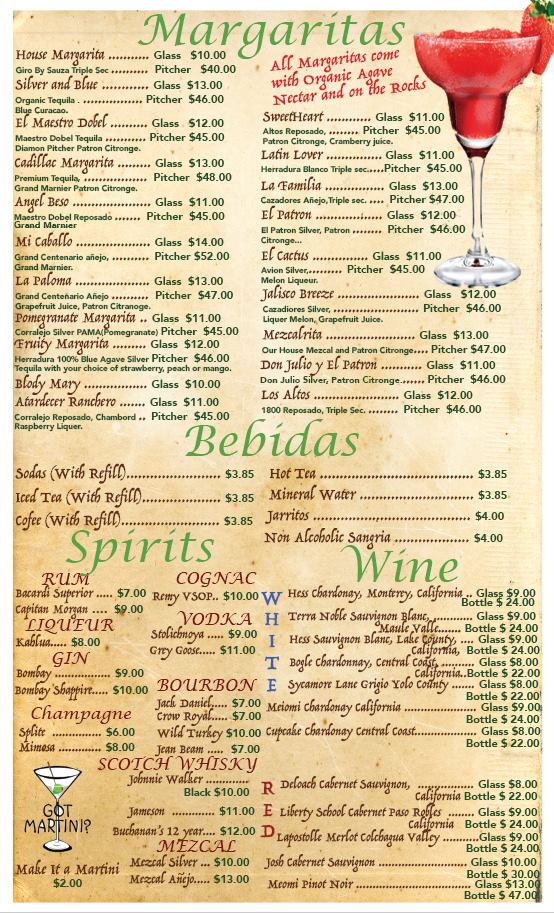 Margaritas
House Margarita ............ Glass $10.00
Giro By Sauza Triple Sec ......... Pitcher $40.00
Silver and Blue ............... Glass $13.00
Organic Tequila . ............... Pitcher $46.00
Blue Curacao.
El Maestro Dobel ............ Glass $12.00
Maestro Dobel Tequila ........... Pitcher $45.00
Diamon Pitcher Patron Citronge.
Cadillac Margarita ......... Glass $13.00
Premium Tequila, ................. Pitcher $48.00
Grand Marnier Patron Citronge.
Angel Beso .................... Glass $11.00
Maestro Dobel Reposado ....... Pitcher $45.00
Grand Marnier
Mi Caballo .................... Glass $14.00
Grand Centenario añejo, ............ Pitcher $52.00
Grand Marnier.
La Paloma .................... Glass $13.00
Grand Centenario Añejo ........... Pitcher $47.00
Grapefruit Juice, Patron Citranoge.
Pomegranate Margarita .. Glass $11.00
Corralejo Silver PAMA(Pomegranate) Pitcher $45.00
Fruity Margarita ............ Glass $12.00
Herradura 100% Blue Agave Silver Pitcher $46.00
Tequila with your choice of strawberry, peach or mango.
Blody Mary ................. Glass $10.00
Atardecer Ranchero ....... Glass $11.00
Corralejo Reposado, Chambord .. Pitcher $45.00
Raspberry Liquer.
All Margaritas come
with Organic Agave
Nectar and on the Rocks
SweetHeart .............. Glass $11.00
Altos Reposado, ........ Pitcher $45.00
Patron Citronge, Cramberry juice.
Latin Lover ............. Glass $11.00
Herradura Blanco Triple sec....Pitcher $45.00
La Familia ............. Glass $13.00
Cazadores Añejo,Triple sec. .... Pitcher $47.00
El Patron ............... Glass $12.00
El Patron Silver, Patron ........ Pitcher $46.00
Citronge...
El Cactus .............. Glass $11.00
Avion Silver,.......... Pitcher $45.00
Melon Liqueur.
Jalisco Breeze ................. Glass $12.00
Cazadiores Silver, ................. Pitcher $46.00
Liquer Melon, Grapefruit Juice.
Mezcalrita .................... Glass $13.00
Our House Mezcal and Patron Citronge.... Pitcher $47.00
Don Julio y El Patron ........... Glass $11.00
Don Julio Silver, Patron Citronge...... Pitcher $46.00
Los Altos .................... Glass $12.00
1800 Reposado, Triple Sec. ....... Pitcher $46.00
Bebidas
Sodas (With Refill)..................... $3.85
Iced Tea (With Refill).................. $3.85
Cofee (With Refill)..................... $3.85
Hot Tea ........................................ $3.85
Mineral Water .............................. $3.85
Jarritos ........................................ $4.00
Non Alcoholic Sangria .................. $4.00
Spirits
RUM
Bacardi Superior ..... $7.00
Capitan Morgan .... $9.00
LIQUEUR
Kahlua..... $8.00
GIN
Bombay ................ $9.00
Bombay Shappire..... $10.00
Champagne
Splite ................. $6.00
Mimosa ............... $8.00
COGNAC
Remy VSOP.. $10.00
VODKA
Stolichnoya ..... $9.00
Grey Goose..... $11.00
BOURBON
Jack Daniel.... $7.00
Crow Royal..... $7.00
Wild Turkey $10.00
Jean Beam ..... $7.00
SCOTCH WHISKY
Johnnie Walker .............
Black $10.00
Jameson ............ $11.00
Buchanan's 12 year.... $12.00
MEZCAL
Mezcal Silver ... $10.00
Mezcal Añejo..... $13.00
GOT
MARTINI?
Make It a Martini
$2.00
Wine
WHITE
Hess Chardonay, Monterey, California .. Glass $9.00
Bottle $ 24.00
Terra Noble Sauvignon Blanc, ............ Glass $9.00
Maule Valle....... Bottle $ 24.00
Hess Sauvignon Blanc, Lake County, .... Glass $9.00
California, Bottle $ 24.00
Bogle Chardonnay, Central Coast, ......... Glass $8.00
California..Bottle $ 22.00
Sycamore Lane Grigio Yolo County ...... Glass $8.00
Bottle $ 22.00
Meiomi Chardonay California ............... Glass $9.00
Bottle $ 24.00
Cupcake Chardonay Central Coast......... Glass $8.00
Bottle $ 22.00
RED
Deloach Cabernet Sauvignon, ............... Glass $8.00
California Bottle $ 22.00
Liberty School Cabernet Paso Robles ...... Glass $9.00
California Bottle $ 24.00
Lapostolle Merlot Colchagua Valley ........ Glass $9.00
Bottle $ 24.00
Josh Cabernet Sauvignon .................. Glass $10.00
Bottle $ 30.00
Meomi Pinot Noir .......................... Glass $13.00
Bottle $ 47.00